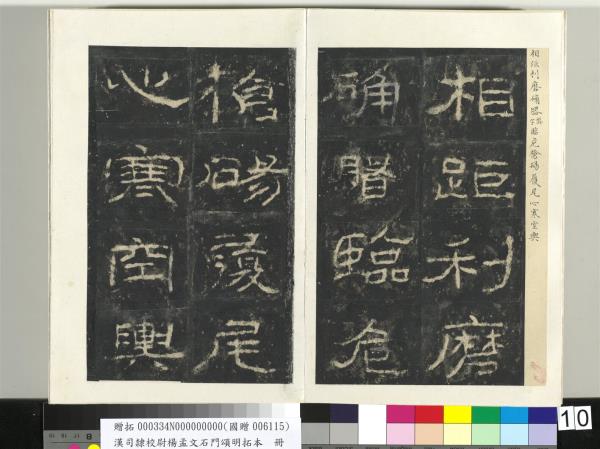 相距利磨确臨危槍碭履尾心寒空輿
相距利磨
确臨危
槍碭履尾
心寒空輿
10
8
贈拓 000334N000000000(國贈 006115)
漢司隸校尉楊孟文石門頌明拓本 冊